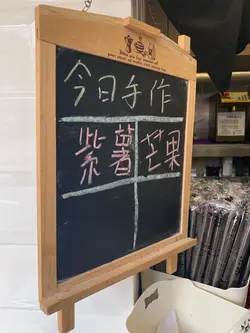 今日手作
紫薯 芒果